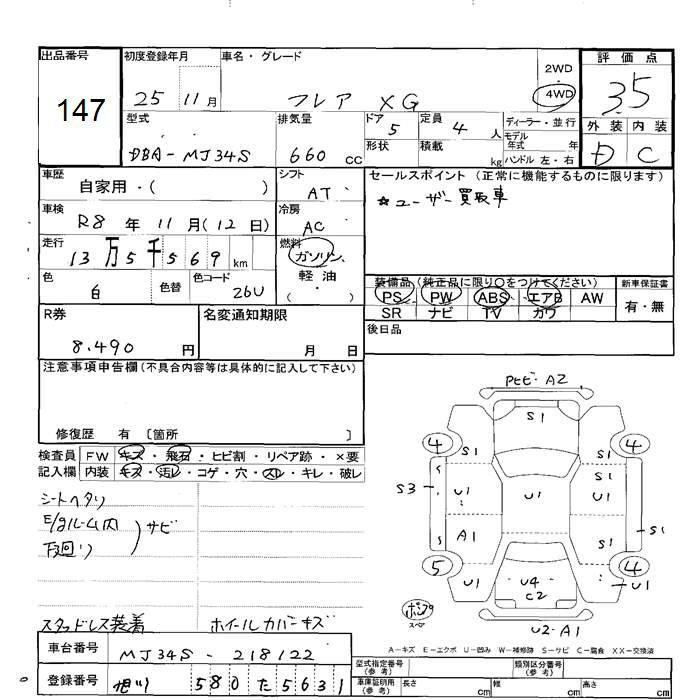 出品番号 初度登録年月 車名・グレード 評価点
147 25 11月 フレア XG 2WD 4WD 3.5
型式 排気量 ドア 定員 ディーラー・並行 外装 内装
DBA-MJ34S 660 cc 5 4人 モデル年式 年 D C
形状 積載 kg ハンドル 左・右
車歴 自家用・( ) シフト AT セールスポイント (正常に機能するものに限ります)
車検 R8年 11月(12日) 冷房 AC ☆ユーザー買取車
走行 13万5千569km 燃料 ガソリン
軽油
( )
色 白 色替 色コード 26U
装備品 (純正品に限り○をつけてください) 新車保証書
PS PW ABS エアB AW 有・無
SR ナビ TV カワ
R券 名変通知期限 後日品
8.490 円 月 日
注意事項申告欄 (不具合内容等は具体的に記入して下さい)
修復歴 有 〔箇所 〕
検査員 FW キズ・飛石・ヒビ割・リペア跡・×要
記入欄 内装 キズ・汚レ・コゲ・穴・スレ・キレ・破レ
シートヘタリ
E/gルーム内
下回り
サビ
スタッドレス装着 ホイールカバーキズ
A2
S1
4 4
S1 S1
S3 U1 U1 U1
S1
A1 S1
5 4
U1 U4 U1
C2
スペア
U2-A1
A-キズ E-エクボ U-凹み W-補修跡 S-サビ C-腐食 XX-交換済
車台番号 MJ34S-218122
登録番号 旭川 580 た 5631
型式指定番号 (参考) 類別区分番号 (参考)
車庫証明用 (参考) 長さ cm 幅 cm 高さ cm